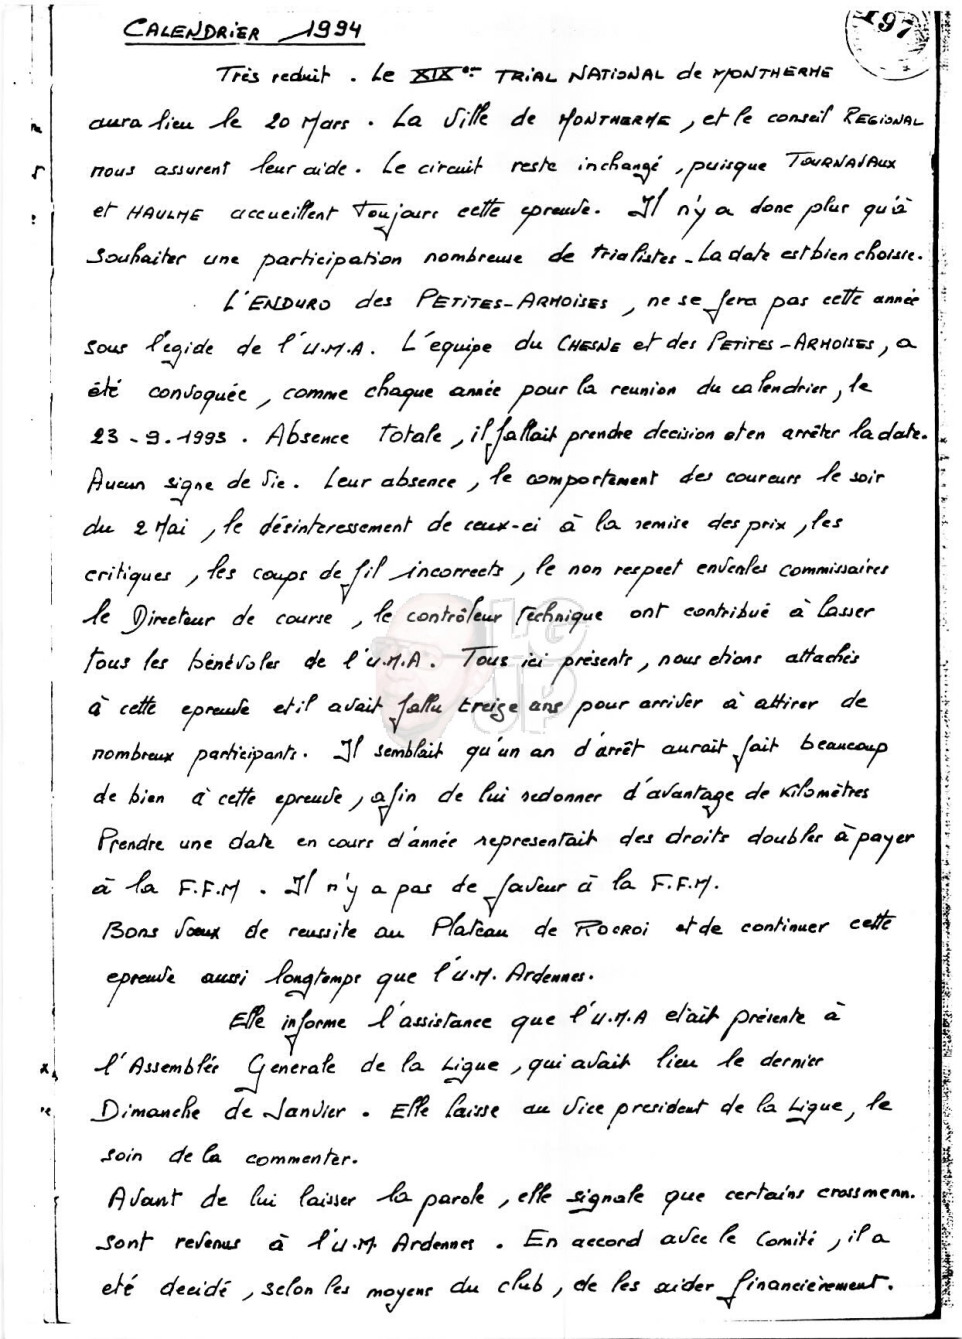 CALENDRIER 1994
197
Très reduit. Le XIXe TRIAL NATIONAL de MONTHERME
aura lieu le 20 Mars. La Ville de MONTHERME, et le conseil REGIONAL
nous assurent leur aide. Le circuit reste inchangé, puisque TOURNAVAUX
et HAULME accueillent Toujours cette epreuve. Il n'y a donc plus qu'à
souhaiter une participation nombreuse de trialistes - La date est bien choisie.
L'ENDURO des PETITES-ARMOISES, ne se fera pas cette année
sous l'egide de l'U.M.A. L'equipe du CHESNE et des PETITES-ARMOISES, a
été convoquée, comme chaque année pour la reunion du calendrier, le
23-9-1993. Absence Totale, il fallait prendre decision et en arrêter la date.
Aucun signe de Vie. Leur absence, le comportement des coureurs le soir
du 2 Mai, le désinteressement de ceux-ci à la remise des prix, les
critiques, les coups de fil incorrects, le non respect envers les commissaires
le Directeur de course, le contrôleur Technique ont contribué à lasser
tous les bénévoles de l'U.M.A. Tous ici présents, nous etions attachés
à cette epreuve et il avait fallu treize ans pour arriver à attirer de
nombreux participants. Il semblait qu'un an d'arrêt aurait fait beaucoup
de bien à cette epreuve, afin de lui redonner d'avantage de Kilomètres
Prendre une date en cours d'année representait des droits doubles à payer
à la F.F.M. Il n'y a pas de faveur à la F.F.M.
Bons Vœux de reussite au Plateau de ROCROI et de continuer cette
epreuve aussi longtemps que l'U.M. Ardennes.
Elle informe l'assistance que l'U.M.A etait présente à
l'Assemblée Generale de la Ligue, qui avait lieu le dernier
Dimanche de Janvier. Elle laisse au Vice president de la Ligue, le
soin de la commenter.
Avant de lui laisser la parole, elle signale que certains crossmenn.
sont revenus à l'U.M. Ardennes. En accord avec le Comité, il a
eté decidé, selon les moyens du club, de les aider financièrement.
LG
JP